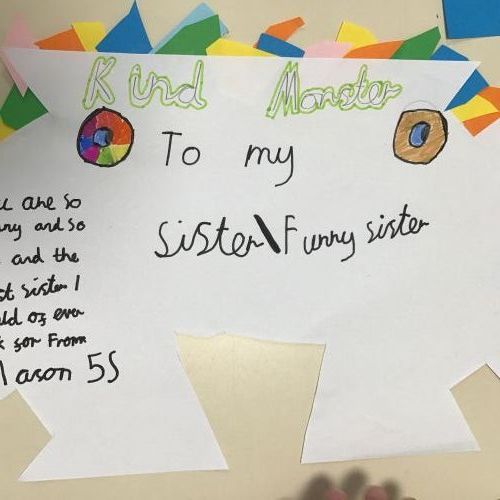 Kind Monster
To my
sister\Funny sister
are so
and so
and the
sister I
of ever
for From
ason 5S